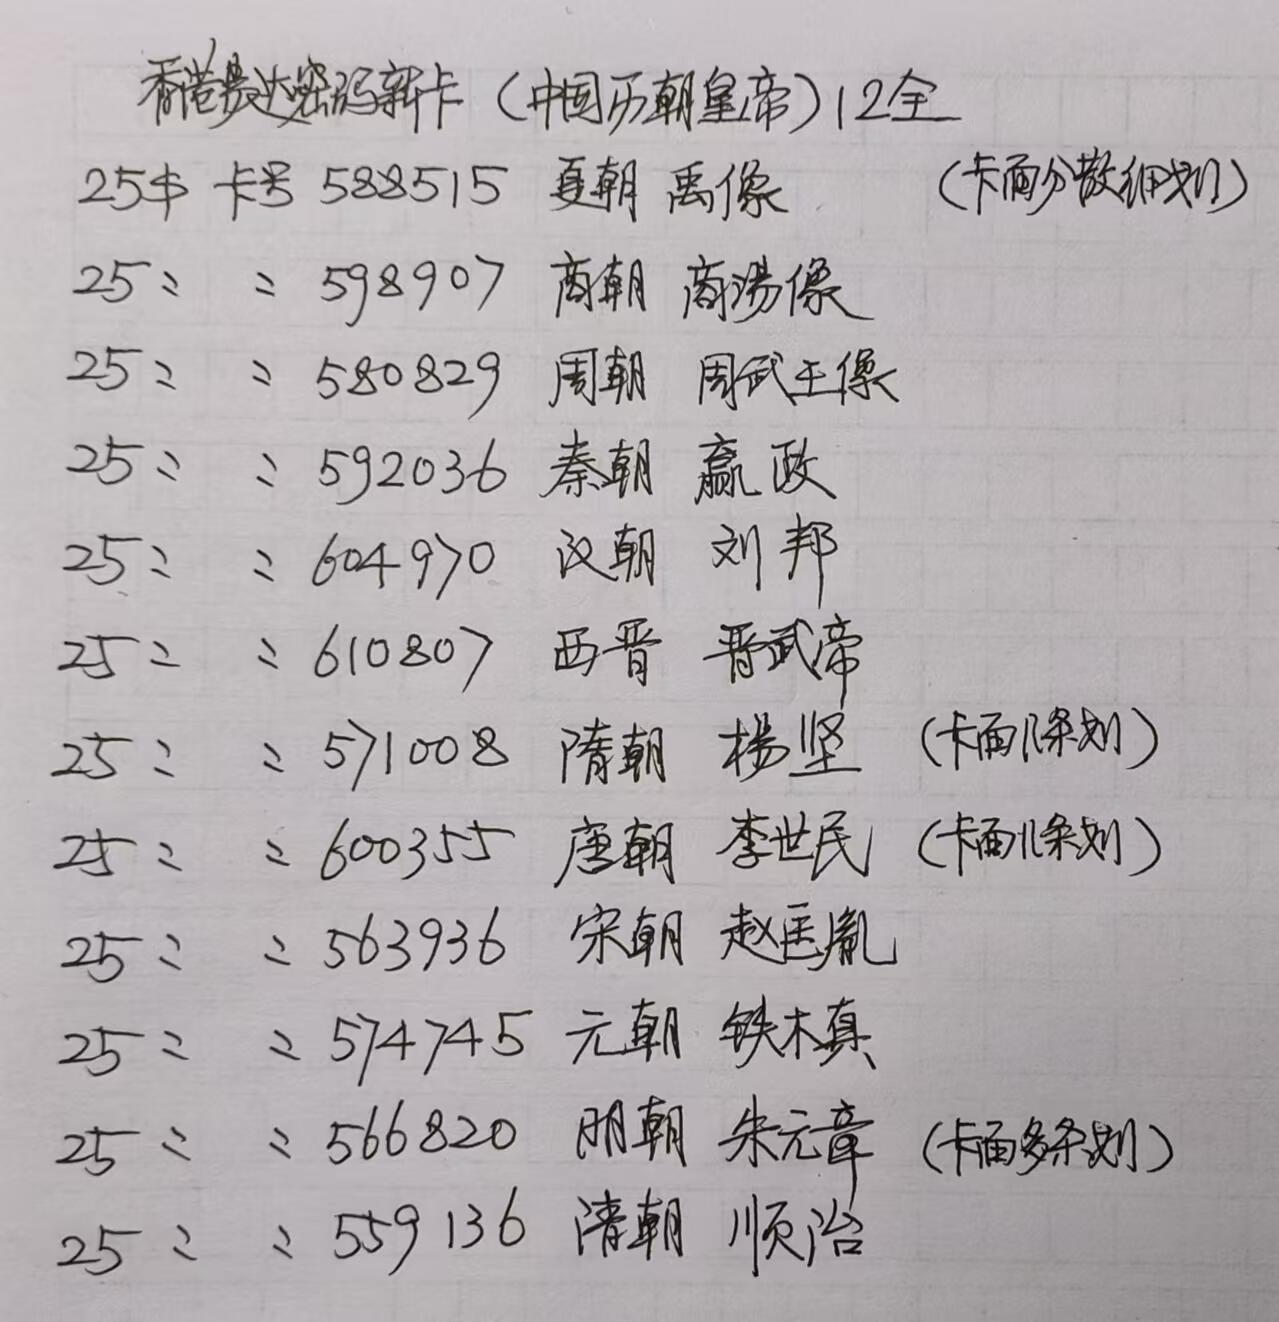 香港景达密码新卡（中国历朝皇帝）12全
25$ 卡号 588515 夏朝 禹像 （卡面分散细划）
25〃 〃 598907 商朝 商湯像
25〃 〃 580829 周朝 周武王像
25〃 〃 592036 秦朝 嬴政
25〃 〃 604970 汉朝 刘邦
25〃 〃 610807 西晋 晋武帝
25〃 〃 571008 隋朝 楊坚 （卡面几条划）
25〃 〃 600355 唐朝 李世民 （卡面几条划）
25〃 〃 563936 宋朝 赵匡胤
25〃 〃 574745 元朝 铁木真
25〃 〃 566820 明朝 朱元章 （卡面多条划）
25〃 〃 559136 清朝 顺治